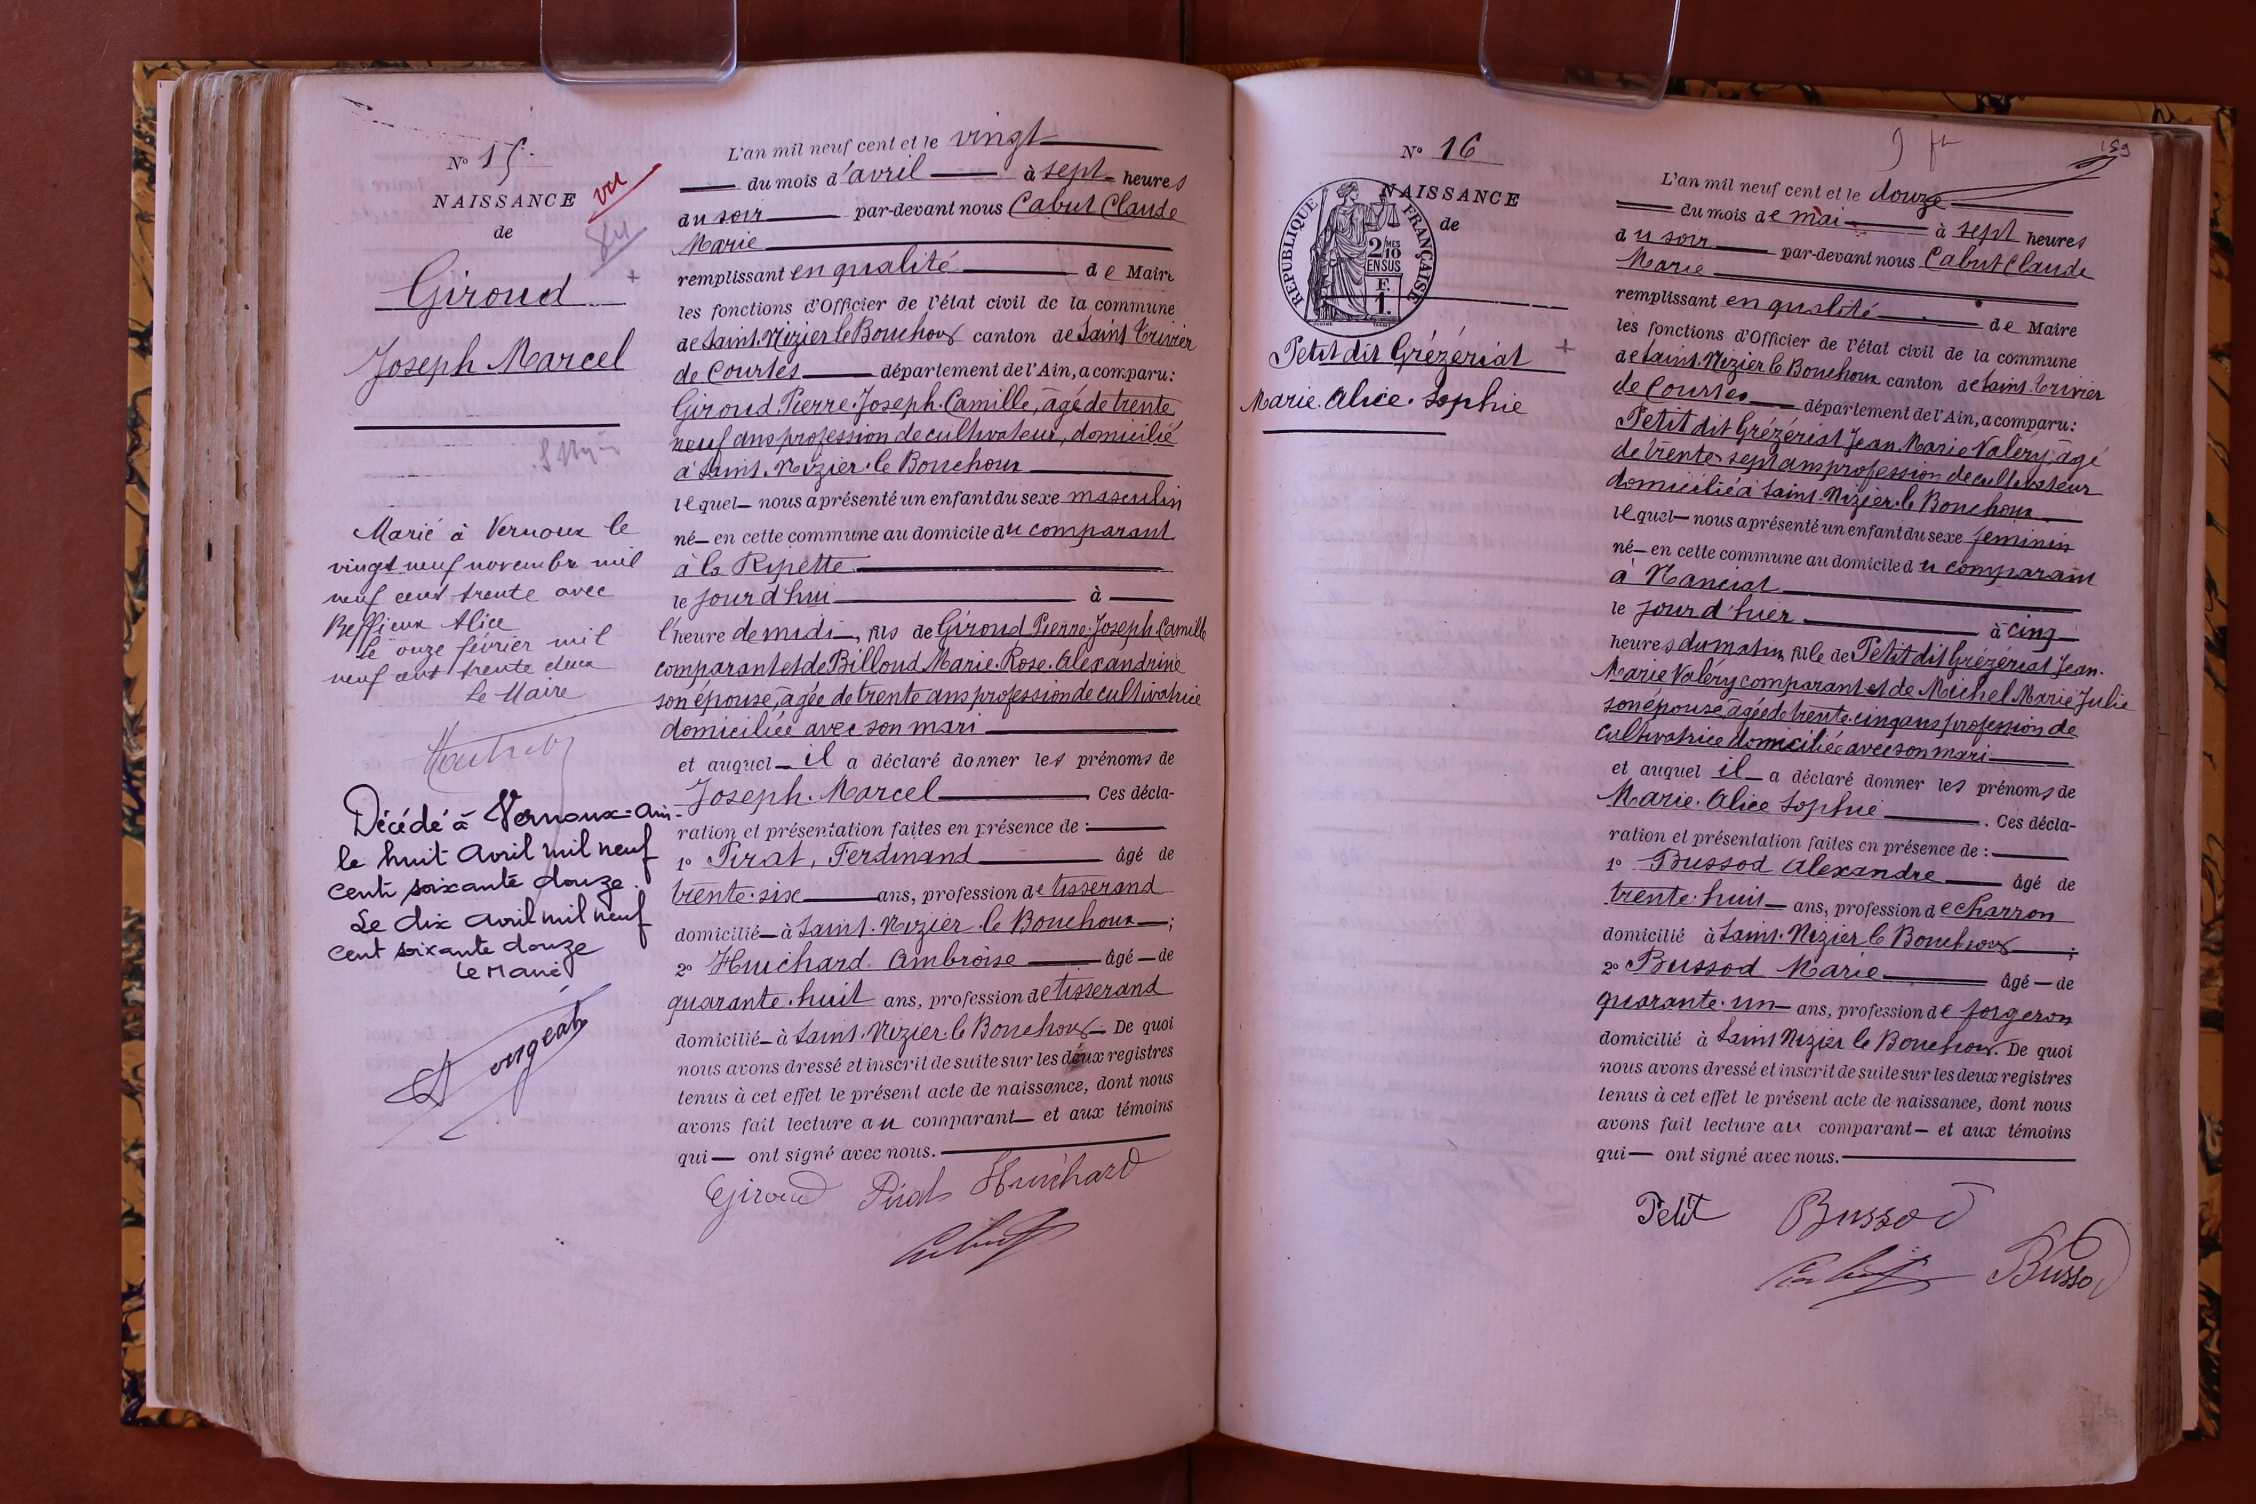 N° 15.
NAISSANCE
vu
de
Giroud
Joseph Marcel
Marié à Vernoux le
vingt neuf novembre mil
neuf cent trente avec
Beffieux Alice
le onze février mil
neuf cent trente deux
Le Maire
Décédé à Vernoux-Ain-
le huit Avril mil neuf
cent soixante douze.
Le dix Avril mil neuf
cent soixante douze
Le Maire
L'an mil neuf cent et le vingt
du mois d'avril à sept heures
du soir par-devant nous Cabut Claude
Marie
remplissant en qualité de Maire
les fonctions d'Officier de l'état civil de la commune
de Saint. Nizier le Bouchoux canton de Saint Trivier
de Courtes département de l'Ain, a comparu:
Giroud Pierre. Joseph. Camille, âgé de trente
neuf ans profession de cultivateur, domicilié
à Saint. Nizier. le Bouchoux
lequel nous a présenté un enfant du sexe masculin
né en cette commune au domicile du comparant
à la Ripette
le jour d'hui à
l'heure de midi, fils de Giroud Pierre. Joseph Camille
comparant et de Billoud Marie. Rose. Alexandrine
son épouse, âgée de trente ans profession de cultivatrice
domiciliée avec son mari
et auquel il a déclaré donner les prénoms de
Joseph. Marcel Ces décla-
ration et présentation faites en présence de :
1° Pirat, Ferdinand âgé de
trente. six ans, profession de tisserand
domicilié à Saint. Nizier. le Bouchoux ;
2° Huichard Ambroise âgé de
quarante. huit ans, profession de tisserand
domicilié à Saint. Nizier. le Bouchoux De quoi
nous avons dressé et inscrit de suite sur les deux registres
tenus à cet effet le présent acte de naissance, dont nous
avons fait lecture au comparant et aux témoins
qui ont signé avec nous.
Giroud Pirat Huichard
Cabut
N° 16
NAISSANCE
de
RÉPUBLIQUE FRANÇAISE
2/10 MES
EN SUS
F.
1.
Petit dit Grézériat
Marie. Alice. Sophie
159
L'an mil neuf cent et le douze
du mois de mai à sept heures
du soir par-devant nous Cabut Claude
Marie
remplissant en qualité de Maire
les fonctions d'Officier de l'état civil de la commune
de Saint. Nizier le Bouchoux canton de Saint. Trivier
de Courtes département de l'Ain, a comparu:
Petit dit Grézériat Jean. Marie Valéry, âgé
de trente. sept ans profession de cultivateur
domicilié à Saint. Nizier. le Bouchoux
lequel nous a présenté un enfant du sexe feminin
né en cette commune au domicile du comparant
à Nanciat
le jour d'hier à cinq
heures du matin, fille de Petit dit Grézériat Jean.
Marie Valéry comparant et de Michel Marie Julie
son épouse, âgée de trente. cinq ans profession de
cultivatrice domiciliée avec son mari
et auquel il a déclaré donner les prénoms de
Marie. Alice Sophie . Ces décla-
ration et présentation faites en présence de :
1° Bussod Alexandre âgé de
trente. huit ans, profession de charron
domicilié à Saint. Nizier le Bouchoux ;
2° Bussod Marie âgé de
quarante. un ans, profession de forgeron
domicilié à Saint Nizier le Bouchoux. De quoi
nous avons dressé et inscrit de suite sur les deux registres
tenus à cet effet le présent acte de naissance, dont nous
avons fait lecture au comparant et aux témoins
qui ont signé avec nous.
Petit Bussod
Cabut Bussod